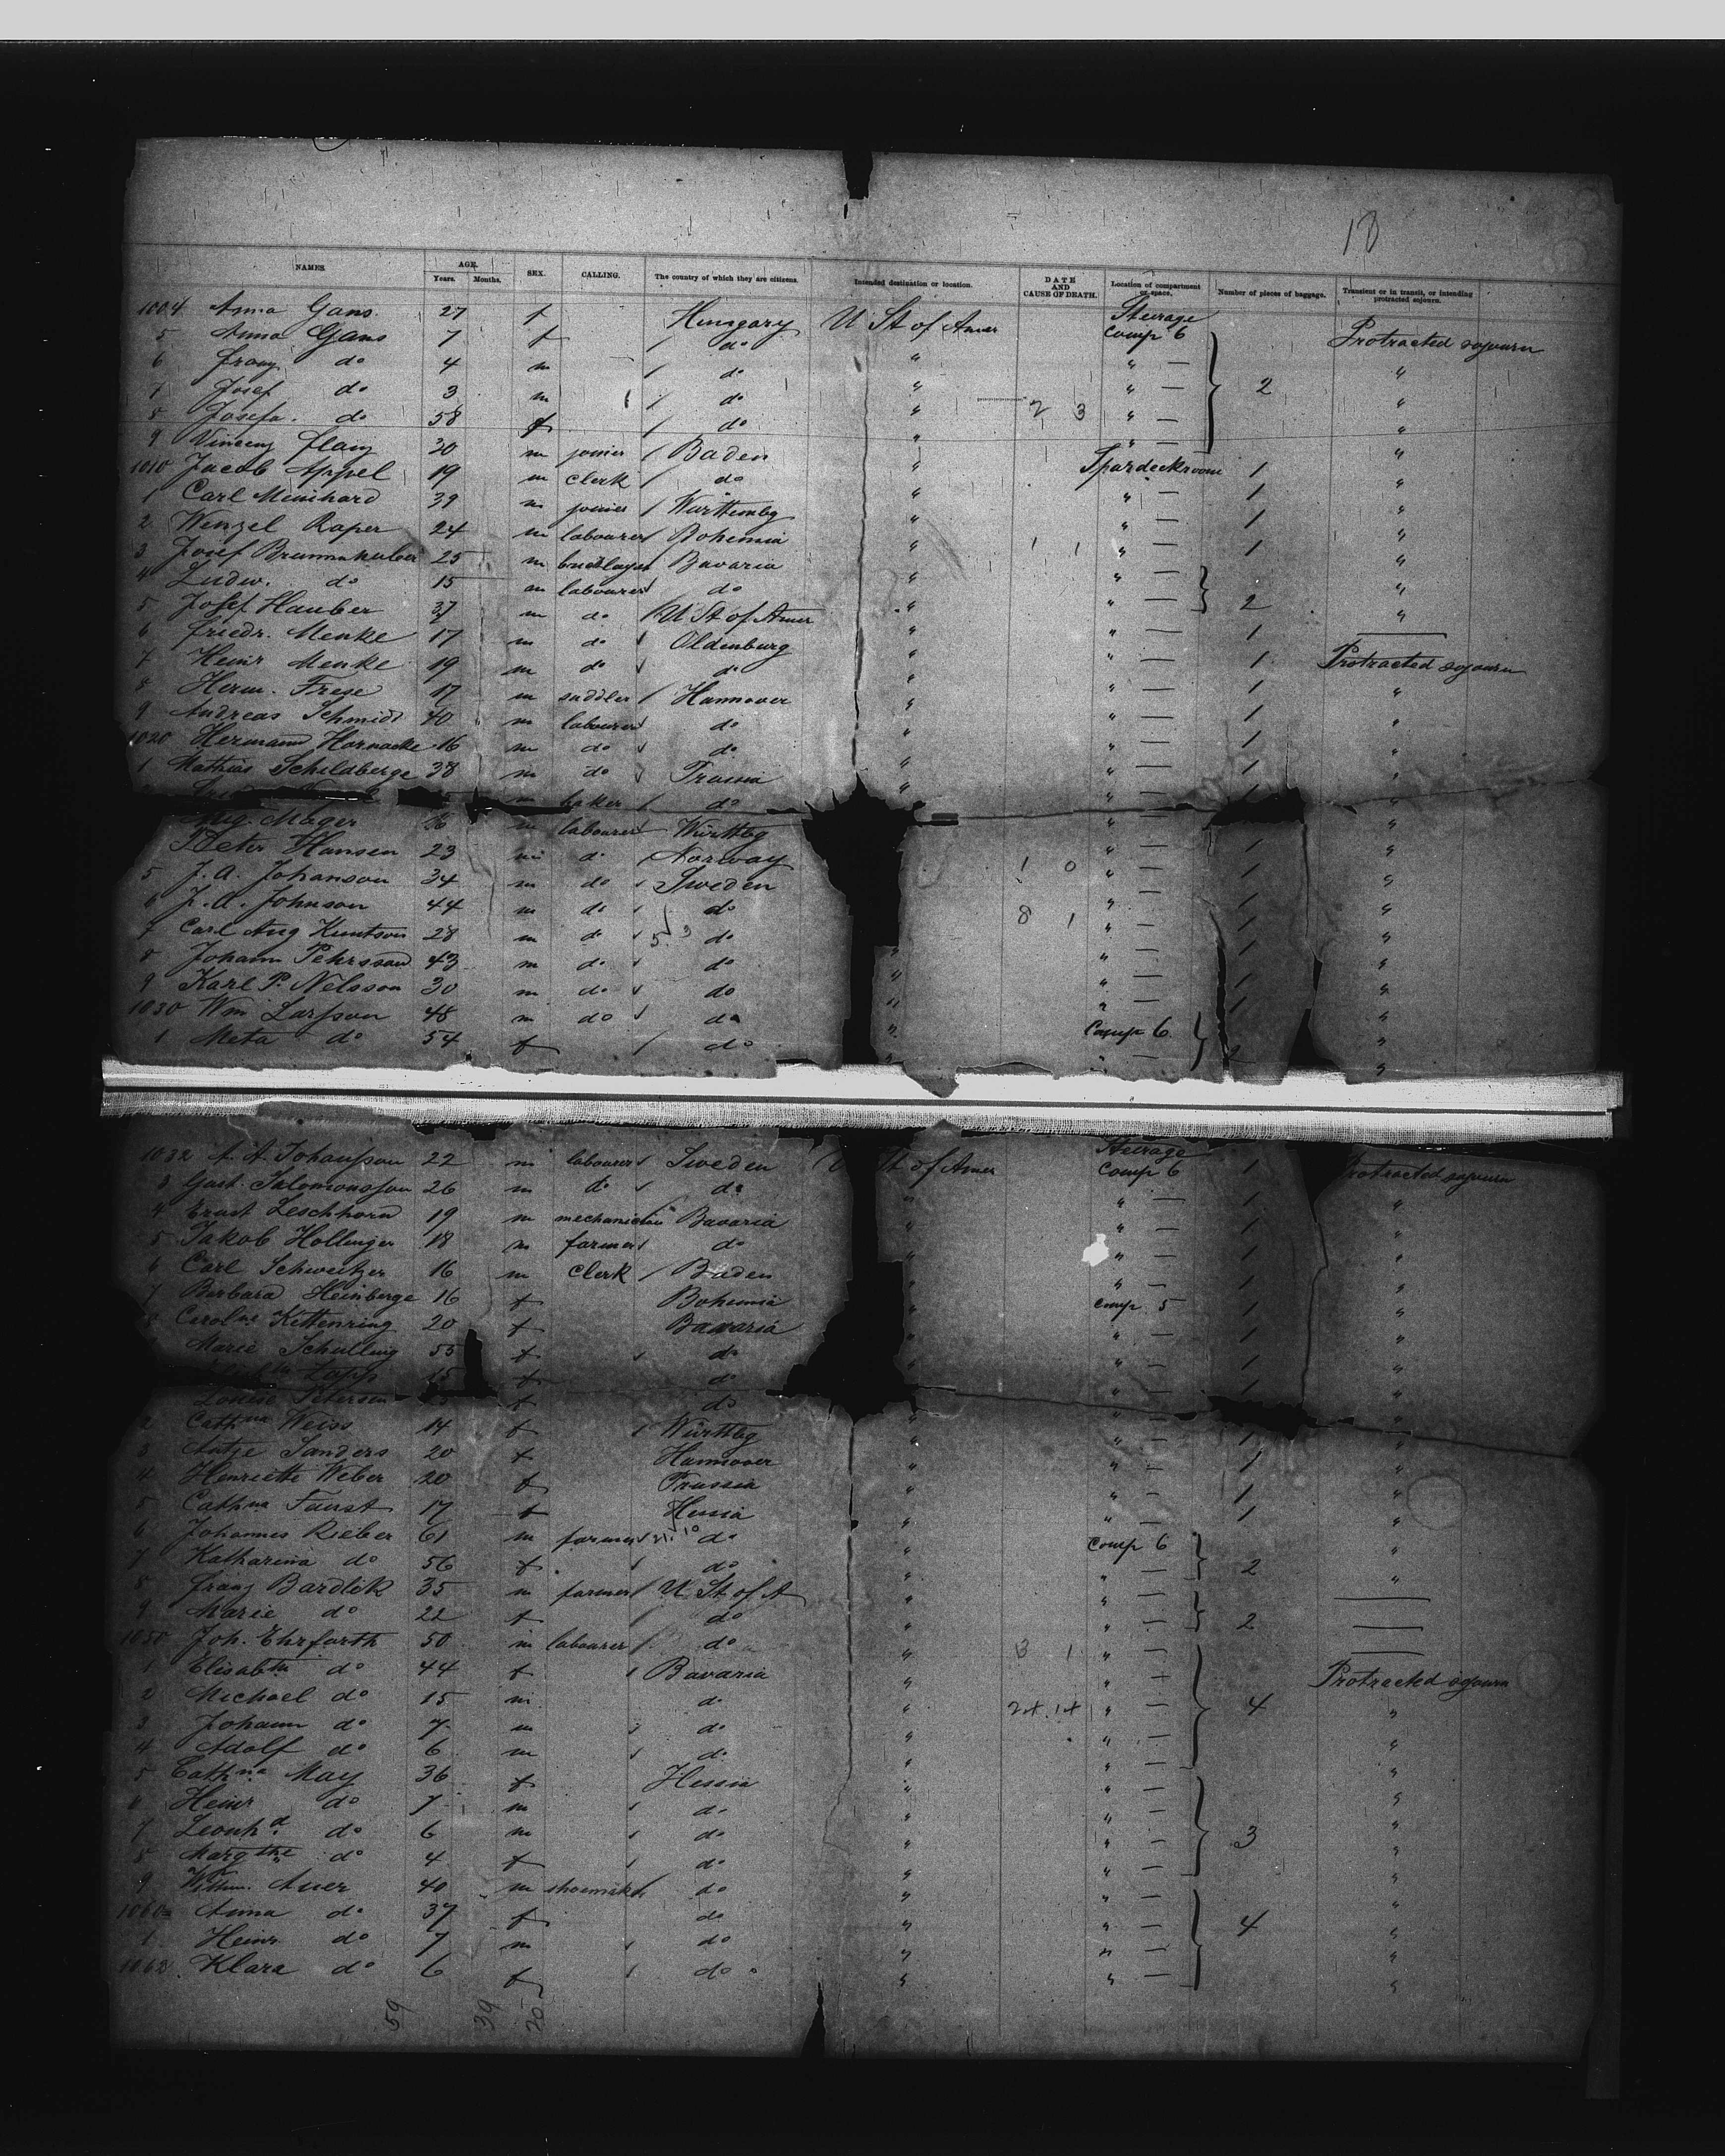 18
NAMES. AGE. Years. Months. SEX. CALLING. The country of which they are citizens. Intended destination or location. DATE AND CAUSE OF DEATH. Location of compartment or space. Number of pieces of baggage. Transient or in transit, or intending protracted sojourn.
1004 Anna Gans. 27 f Hungary U St of Amer Steerage Comp 6 Protracted sojourn
5 Anna Gans 7 f / do " " —
6 Franz do 4 m / do " " — 2 "
7 Josef do 3 m / do " 2 3 " — "
8 Josefa. do 58 f / do " " — "
9 Vincenz Flanz 30 m joiner / Baden " Spardeckroom 1 "
1010 Jacob Appel 19 m clerk / do " " — 1 "
1 Carl Meinhard 39 m joiner / Württembg " " — 1 "
2 Wenzel Raper 24 m labourer / Bohemia " 1 1 " — 1 "
3 Josef Brunnhuber 25 m bricklayer Bavaria " " — "
4 Ludw. do 15 m labourer do " " — 2 "
5 Josef Hauber 37 m do / U St of Amer " " — 1 —
6 Friedr. Menke 17 m do Oldenburg " " — 1 Protracted sojourn
7 Heinr Menke 19 m do do " " — 1 "
8 Herm. Frese 17 m saddler / Hannover " " — 1 "
9 Andreas Schmidt 40 m labourer do " " — 1 "
1020 Hermann Harnacke 16 m do do " " — 1 "
1 Mathias Schildberge 38 m do Prussia " " — 1 "
m baker / do "
Aug. Mager 26 m labourer Württbg " — 1 "
Peter Hansen 23 m do / Norway 1 0 " — 1 "
5 J. A. Johanson 34 m do Sweden " — 1 "
6 J. A. Johnson 44 m do do 8 1 " — 1 "
7 Carl Aug Knutson 28 m do 5/3 do " — 1 "
8 Johann Pehrsson 43 m do do " " — 1 "
9 Karl P. Nelsson 30 m do do " " — 1 "
1030 Wm Larsson 48 m do do " Comp 6 "
1 Meta do 54 f / do " " — 2 "
1032 A. A. Johansson 22 m labourer Sweden U St of Amer Steerage Comp 6 1 Protracted sojourn
3 Gust. Salomonsson 26 m do do " " — 1 "
4 Ernst Leschhorn 19 m mechanician Bavaria " " — 1 "
5 Jakob Hollinger 18 m farmer do " " — 1 "
6 Carl Schweitzer 16 m clerk / Baden " " — 1 "
7 Barbara Heinberge 16 f Bohemia " Comp 5 1 "
8 Caroline Kettenring 20 f Bavaria " " — 1 "
Marie Schilling 55 f do " " — 1 "
Tapp 15 f do " —
Louise Petersen f do " "
2 Cathna Weiss 14 f / Württbg " " — 1 "
3 Antje Sanders 20 f Hannover " " — 1 "
4 Henriette Weber 20 f Prussia " " — 1 "
5 Cathna Faust 17 f Hessia " " — 1 "
6 Johannes Rieber 61 m farmer do " Comp 6 "
7 Katharina do 56 f do " " — 2 "
8 Franz Bardlik 35 m farmer / U St of A " " — —
9 Marie do 22 f / do " " — 2 —
1050 Joh. Ehrfurth 50 m labourer / do " 3 1 " — —
1 Elisabth do 44 f Bavaria " " — Protracted sojourn
2 Michael do 15 m do " 2+ 1+ " — 4 "
3 Johann do 7 m do " " — "
4 Adolf do 6 m do " " — "
5 Cathna May 36 f Hessia " " — "
6 Heinr do 7 m do " " — "
7 Leonhd do 6 m do " " — 3 "
8 Margthe do 4 f do " " — "
9 Wilhm. Auer 40 m shoemaker do " " — "
1060 Anna do 37 f do " " — 4 "
1 Heinr do 7 m do " " — "
1062 Klara do 6 f do " " — "
59 39 20